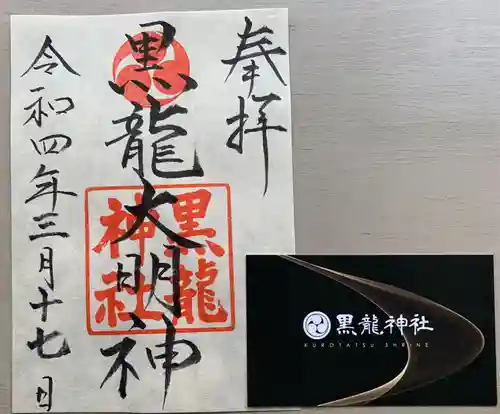 奉拝
黒龍大明神
黒龍
神社
令和四年三月十七日
黒龍神社
KUROTATSU SHRINE